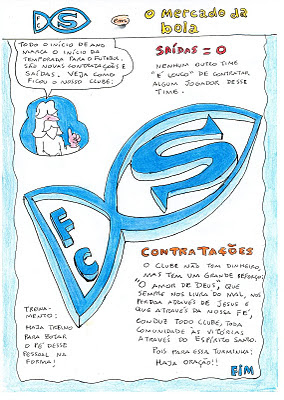 S
O MERCADO DA
BOLA
TODO O INÍCIO DE ANO
MARCA O INÍCIO DA
TEMPORADA PARA O FUTEBOL.
SÃO NOVAS CONTRATAÇÕES E
SAÍDAS. VEJA COMO
FICOU O NOSSO CLUBE:
SAÍDAS = 0
NENHUM OUTRO TIME
"É LOUCO" DE CONTRATAR
ALGUM JOGADOR DESSE
TIME.
S
FC
CONTRATAÇÕES
O CLUBE NÃO TEM DINHEIRO,
MAS TEM UM GRANDE REFORÇO:
"O AMOR DE DEUS", QUE
SEMPRE NOS LIVRA DO MAL, NOS
PERDOA ATRAVÉS DE JESUS E
QUE ATRAVÉS DA NOSSA FÉ,
CONDUZ TODO CLUBE, TODA
COMUNIDADE ÀS VITÓRIA,
ATRAVÉS DO ESPÍRITO SANTO.
POIS PARA ESSA TURMINHA:
HAJA ORAÇÃO!!
TREINA-
MENTO:
HAJA TREINO
PARA BOTAR
O PÉ DESSE
PESSOAL NA
FORMA!
FIM